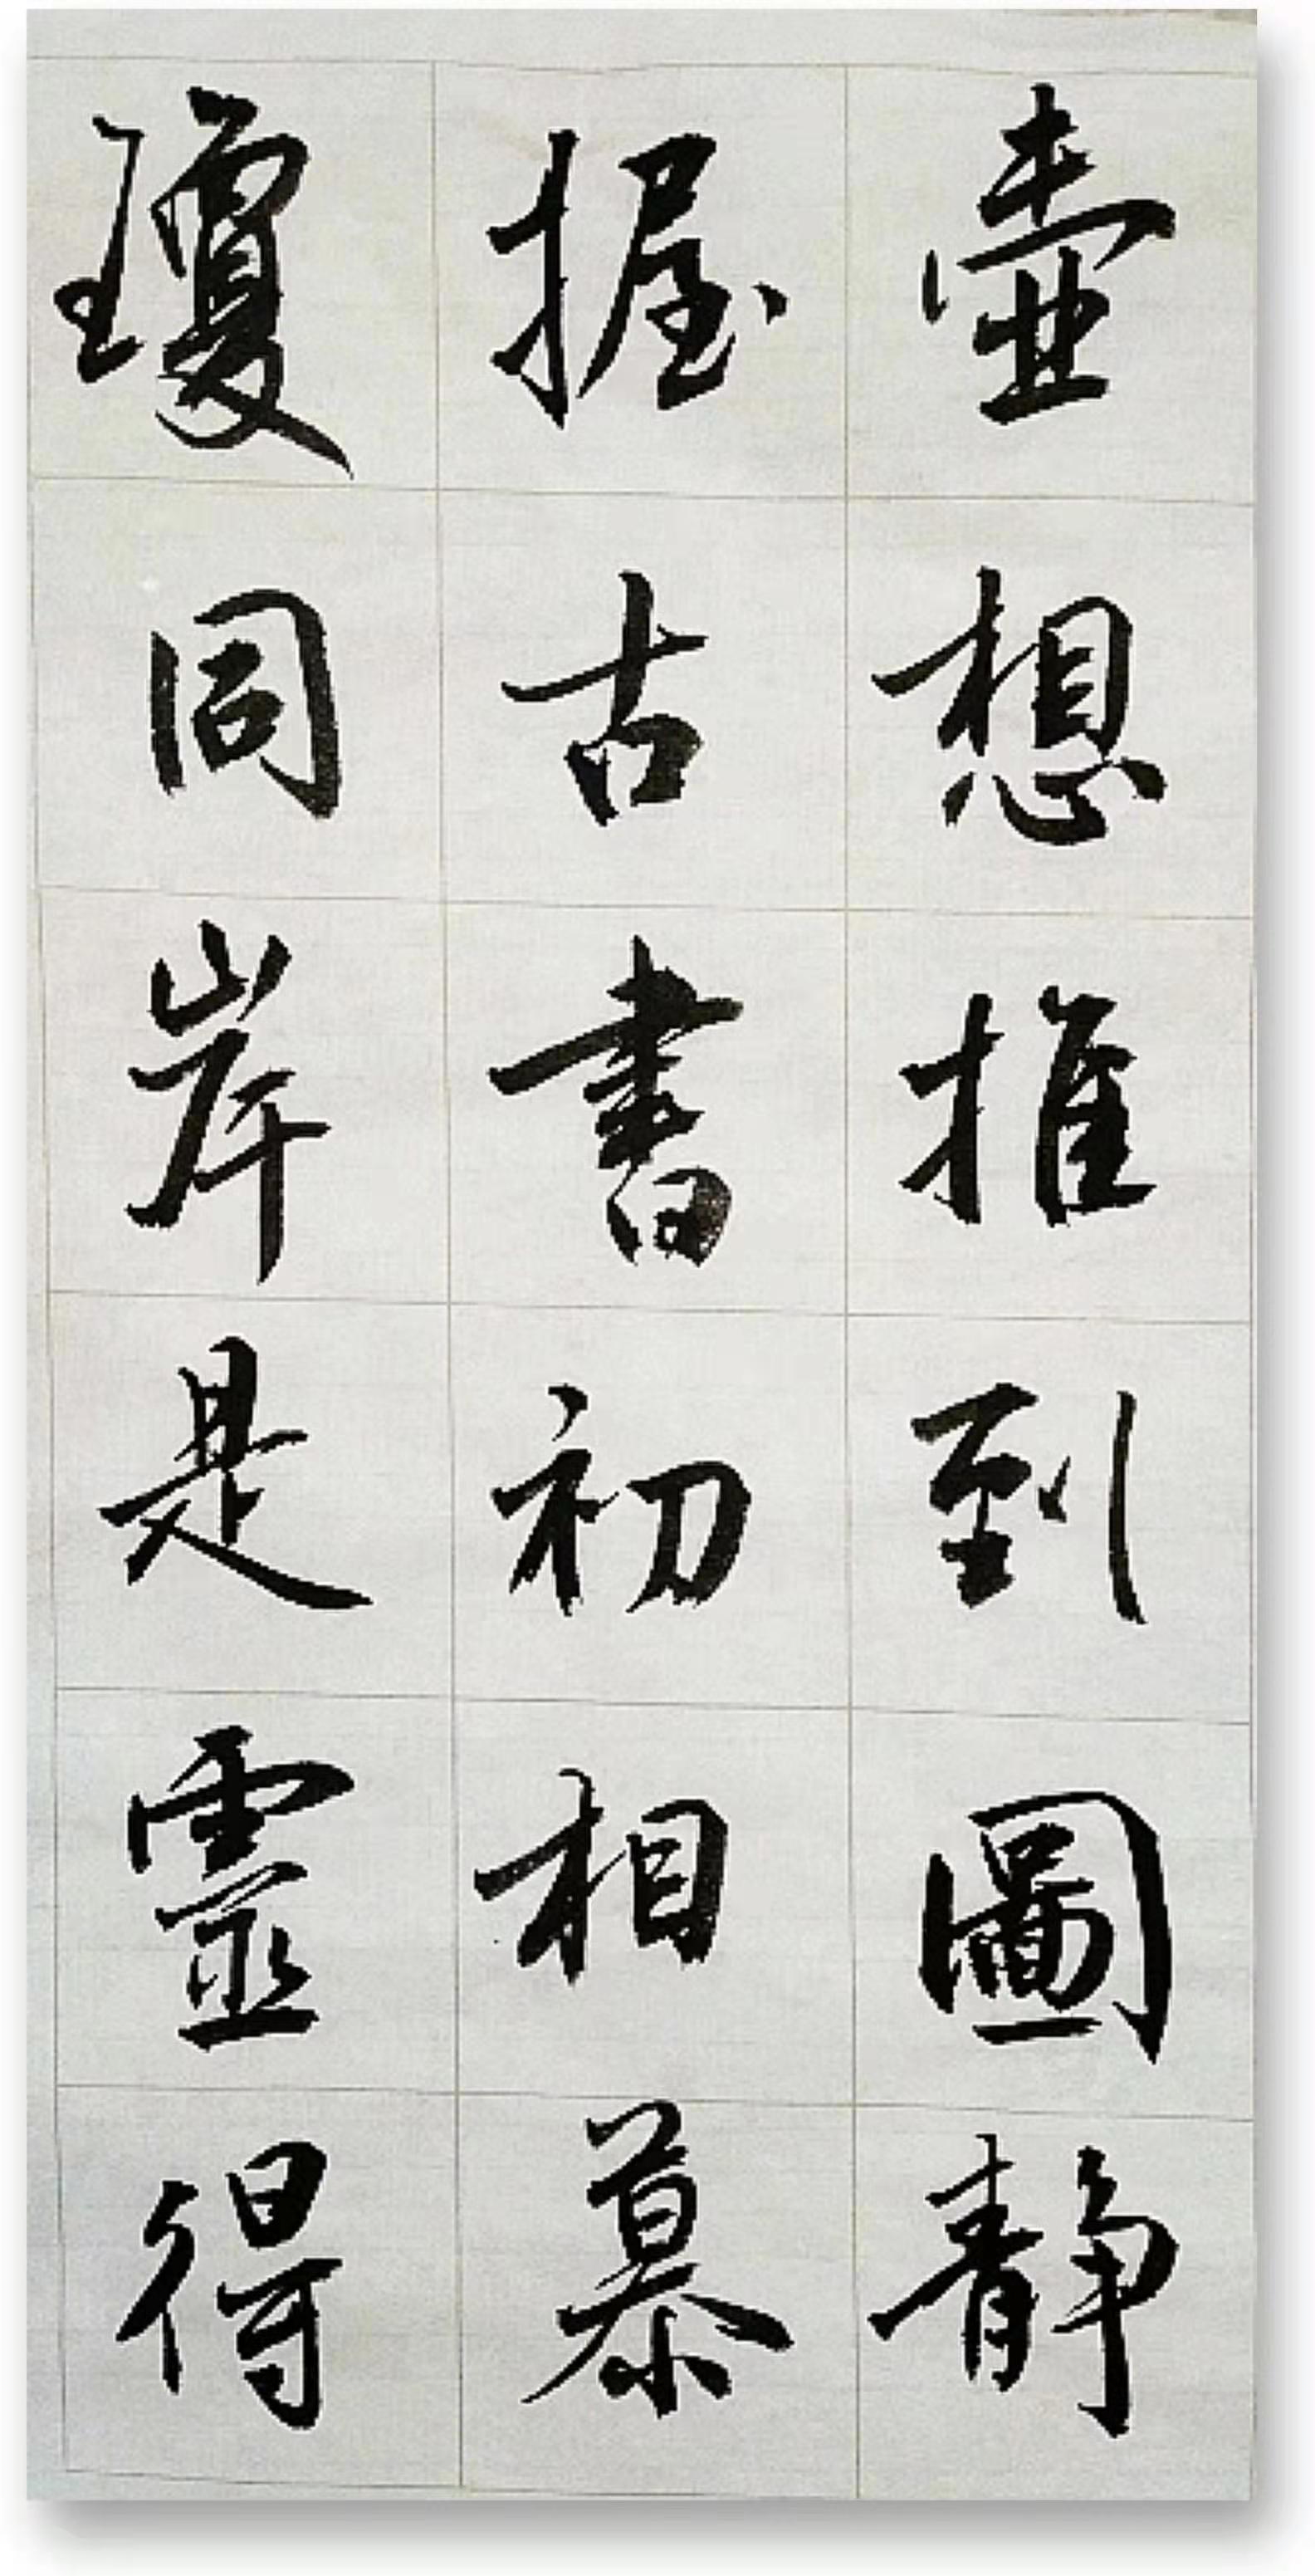 壺想推到圖靜
握古書初相慕
瓊同岸是靈得